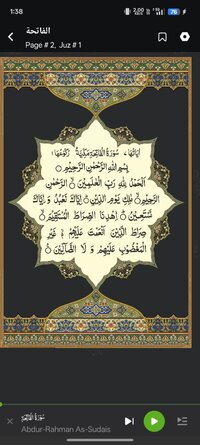 1:38
2.00
76
الفاتحة
Page # 2, Juz # 1
بِسْمِ اللّٰهِ الرَّحْمٰنِ الرَّحِيْمِ ○
اَلْحَمْدُ لِلّٰهِ رَبِّ الْعٰلَمِيْنَ ○ الرَّحْمٰنِ
الرَّحِيْمِ ○ مٰلِكِ يَوْمِ الدِّيْنِ ○ اِيَّاكَ نَعْبُدُ وَ اِيَّاكَ
نَسْتَعِيْنُ ○ اِهْدِنَا الصِّرَاطَ الْمُسْتَقِيْمَ ○
صِرَاطَ الَّذِيْنَ اَنْعَمْتَ عَلَيْهِمْ ○ غَيْرِ
الْمَغْضُوْبِ عَلَيْهِمْ وَ لَا الضَّآلِّيْنَ ○
سُوْرَةُ الْفَاتِحَةِ
Abdur-Rahman As-Sudais